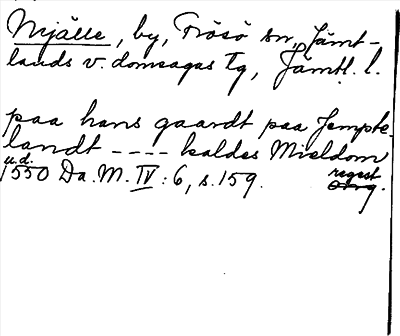 Mjälle, by, Frösö sn, Jämt-
lands v. domsagas tg, Jämtl. l.
paa hans gaardt paa Jempte-
landt ---- kaldes Mieldom
u.d.
1550 Da. M. IV : 6, s. 159. regest
orig.